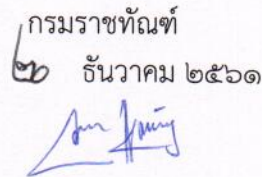 กรมราชทัณฑ์
๒๐ ธันวาคม ๒๕๖๑